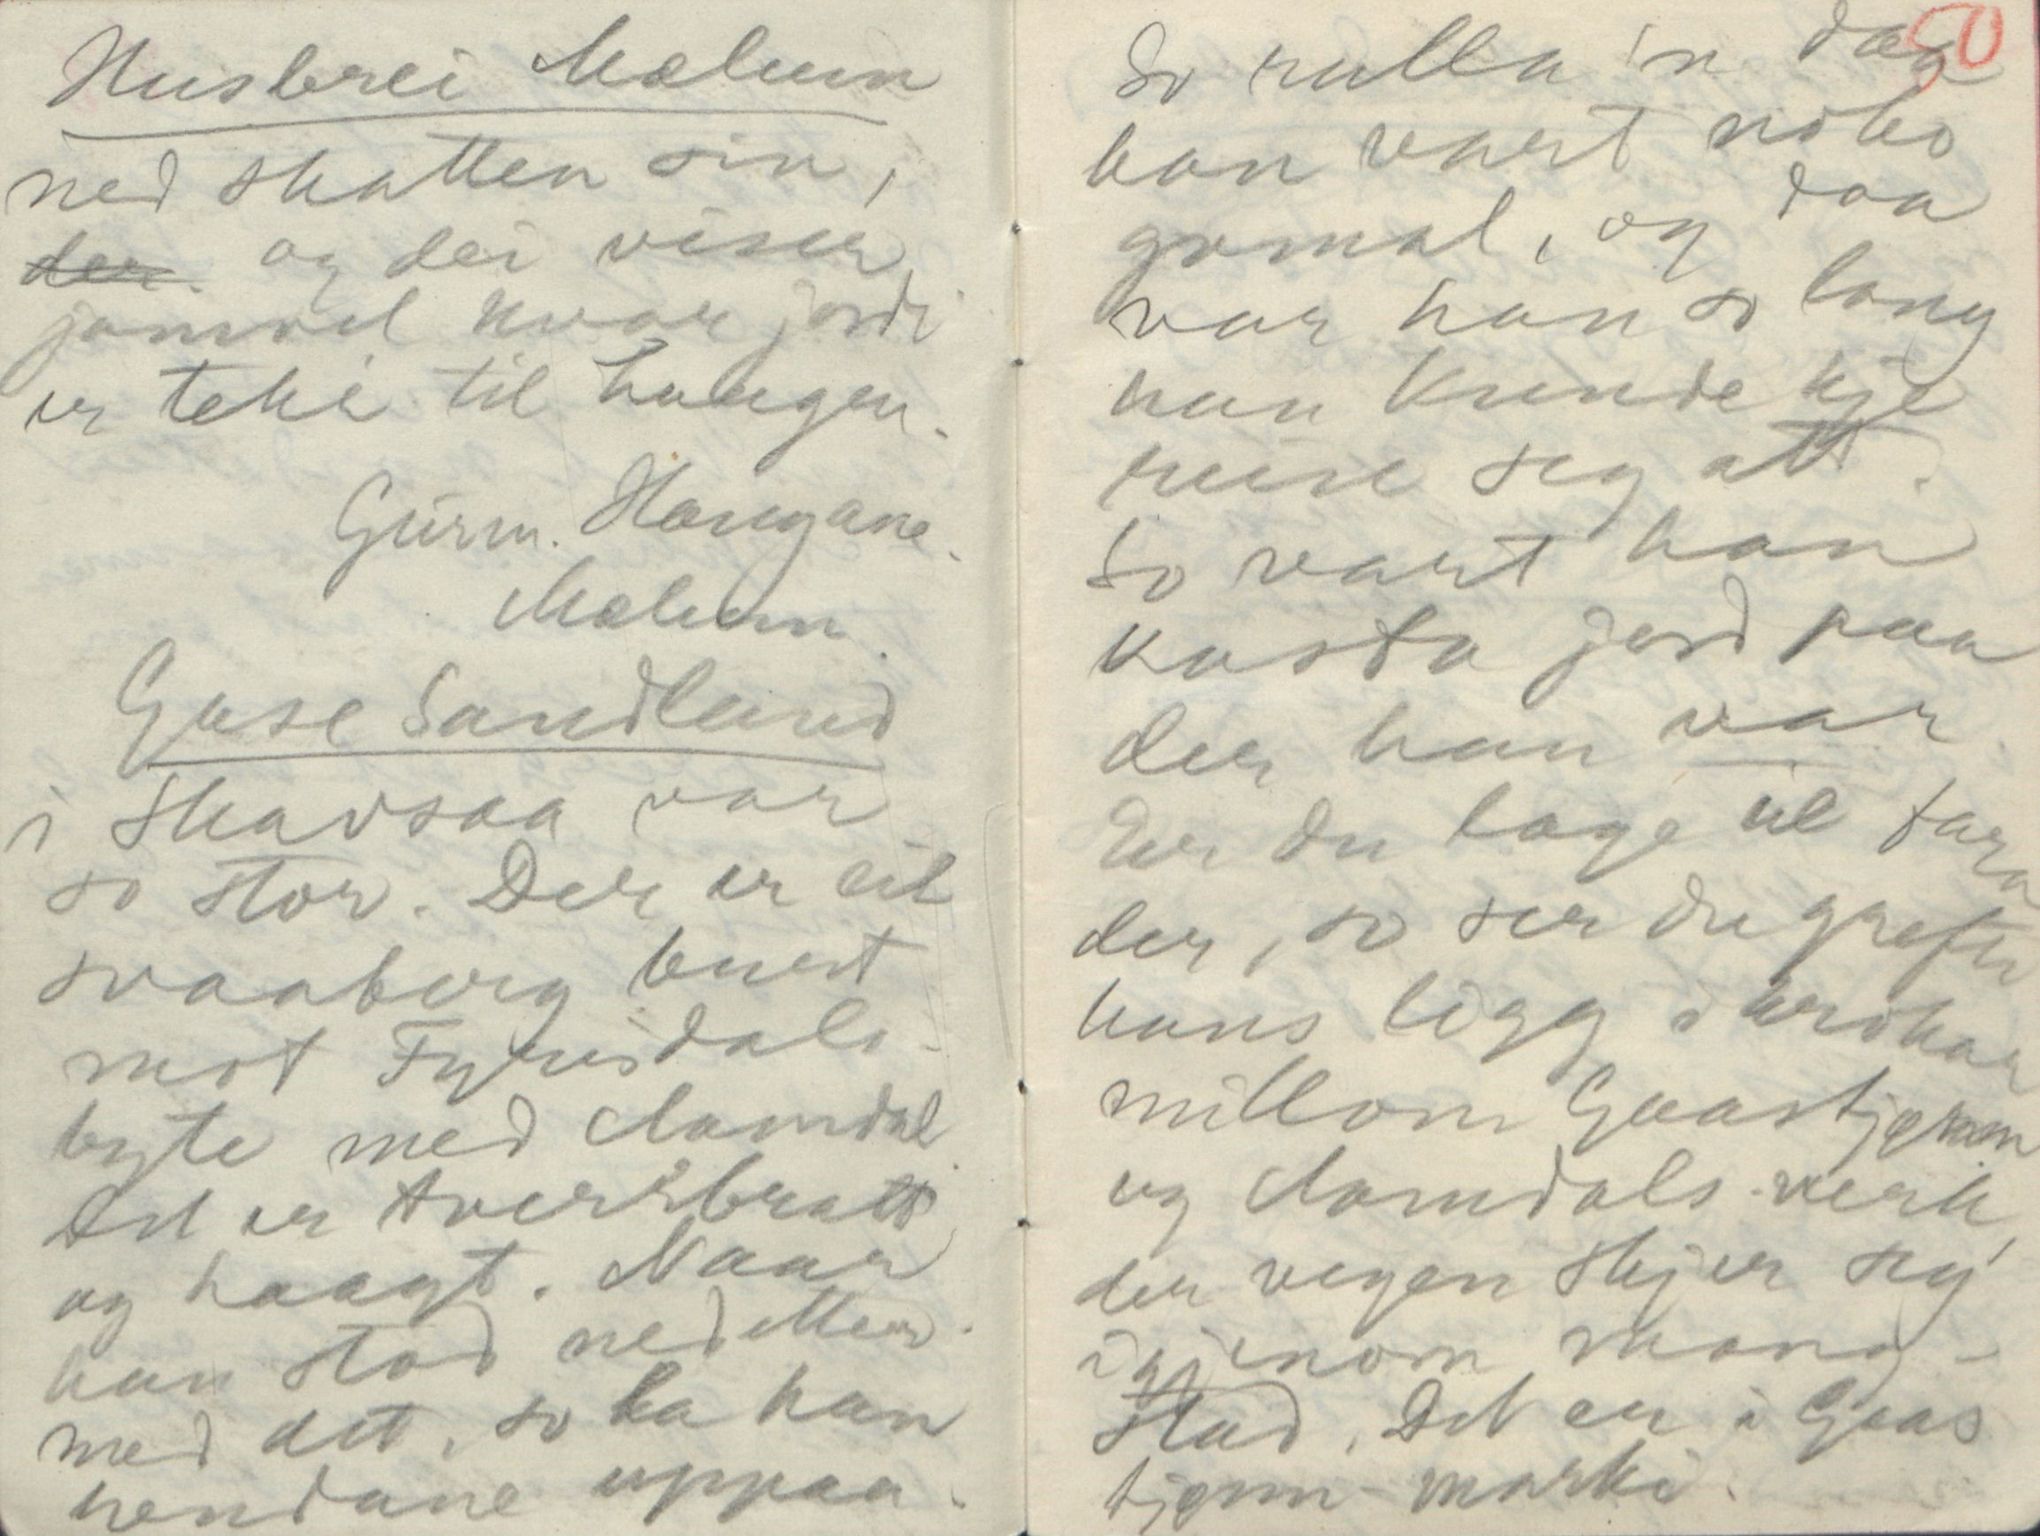 Husbrei Mælum
ned skatten sin,
der. og dei viser
jamvel kvar jordi
er teki til haugen.
Gurin. Haugane.
Mælum
Guse Sandland
i Skavsaa var
so stor. Der er eit
svaaberg burt
mot Fyrisdals-
byte med Aamdal
Det er tverrbratt
og haagt. Naar
han stod nedetter
med det, so la han
hendane uppaa.
50
So rulla 'n daa
han vart noko
gomal, og daa
var han so lang
han kunde kje
reise seg att.
So vart han
kasta jord paa
der han var
Er du lage til fara
der, so ser du grefti
hans ligg i krokar
millom Gaastjønn
og Aamdals-verk,
der vegen skjer seg
igjenom skand-
stad. Det er i Gaas
tjønn-marki.